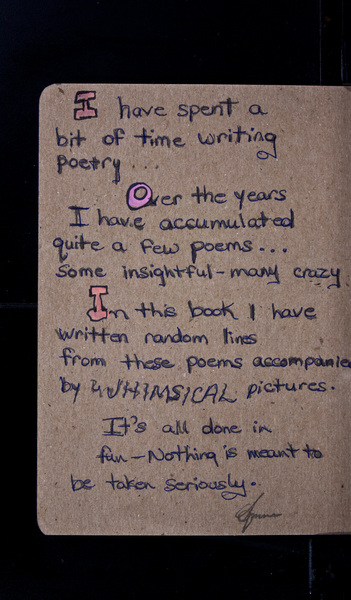 I have spent a
bit of time writing
poetry...
Over the years
I have accumulated
quite a few poems...
Some insightful-many crazy.
In this book I have
written random lines
from these poems accompanied
by WHIMSICAL pictures.
It's all done in
fun-Nothing is meant to
be taken seriously.